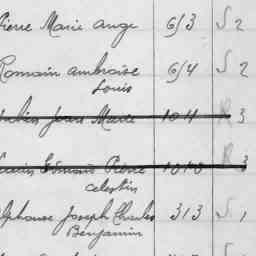 Pierre Marie Ange 6/3 S 2
Romain Ambroise 6/4 S 2
Louis
Julien Jean Marie 10 4 R 3
Pierre R 3
Celestin
Alphonse Joseph Charles 3/3 S 1
Benjamin